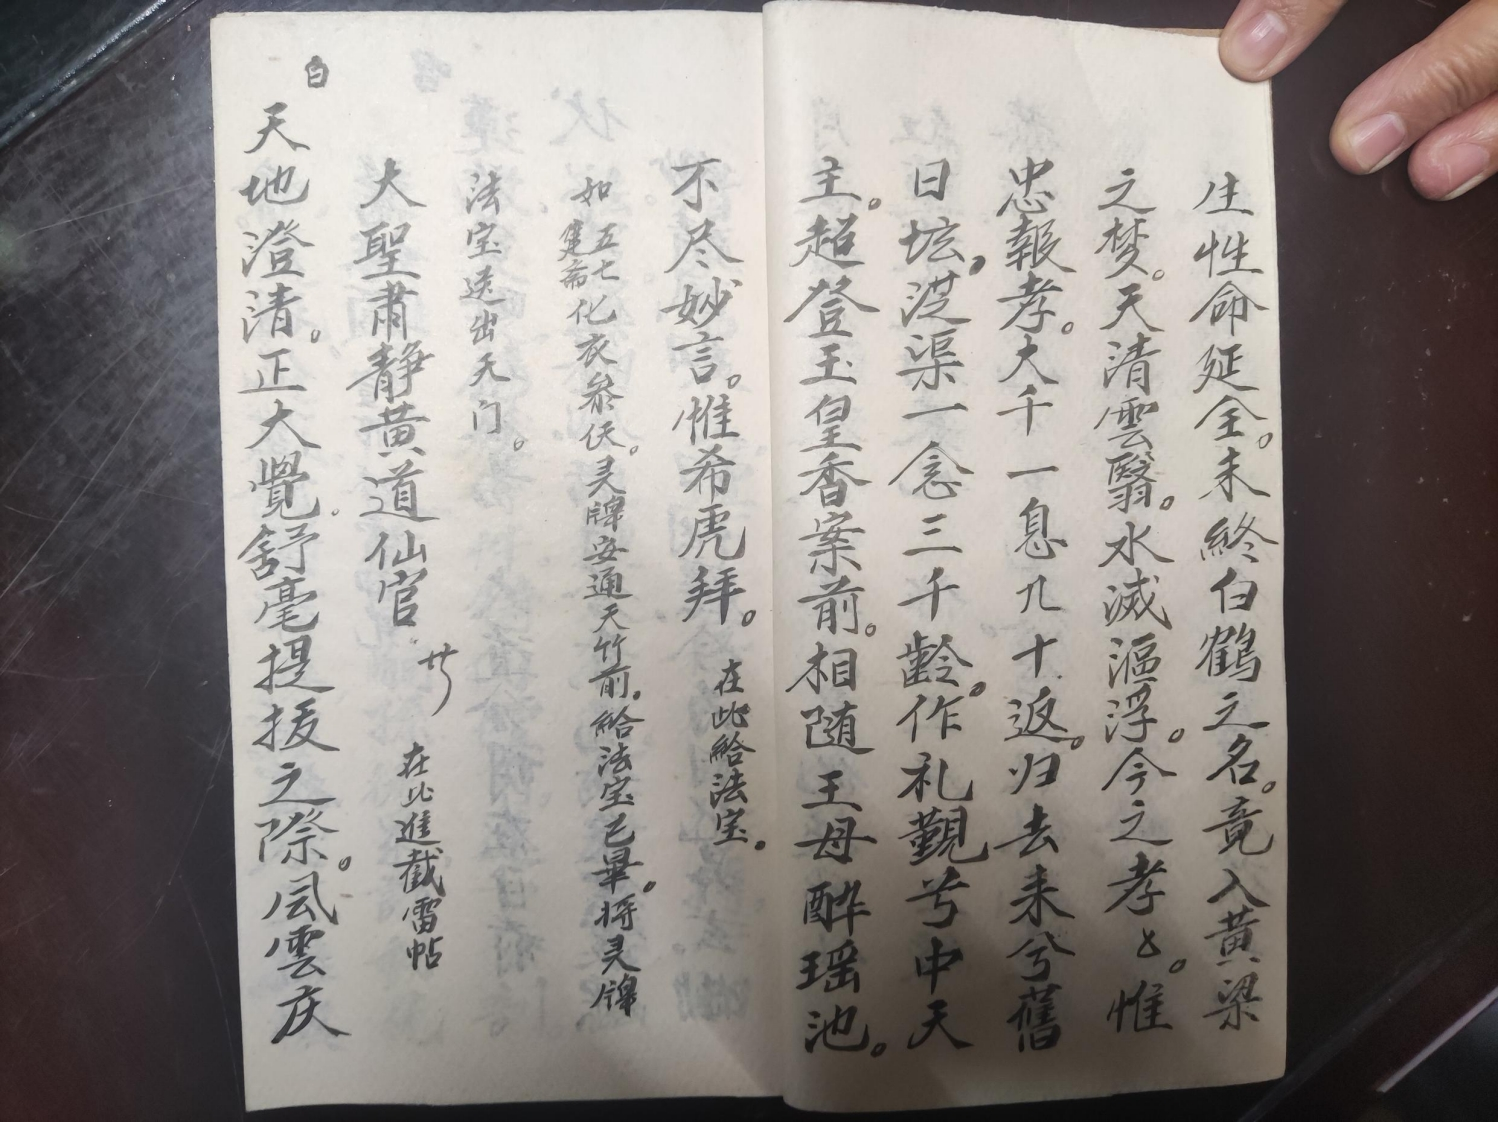 生性命延全。未終白鶴之名。竟入黃梁
之梦。天清雲翳。水滅漚浮。今之孝々。惟
忠報孝。大千一息九十返。归去来兮舊
日坛。渡渠一念三千齡。作礼觀兮中天
主。超登玉皇香案前。相随王母醉瑶池。
不尽妙言。惟希虎拜。
在此給法宝。
如五七筵斋化衣叅伕。灵牌安通天竹前。給法宝已畢。将灵牌
法宝送出天门。
大聖肅静黄道仙官
在此進截雷帖
白
天地澄清。正大覺舒毫提拔之際。风雲庆